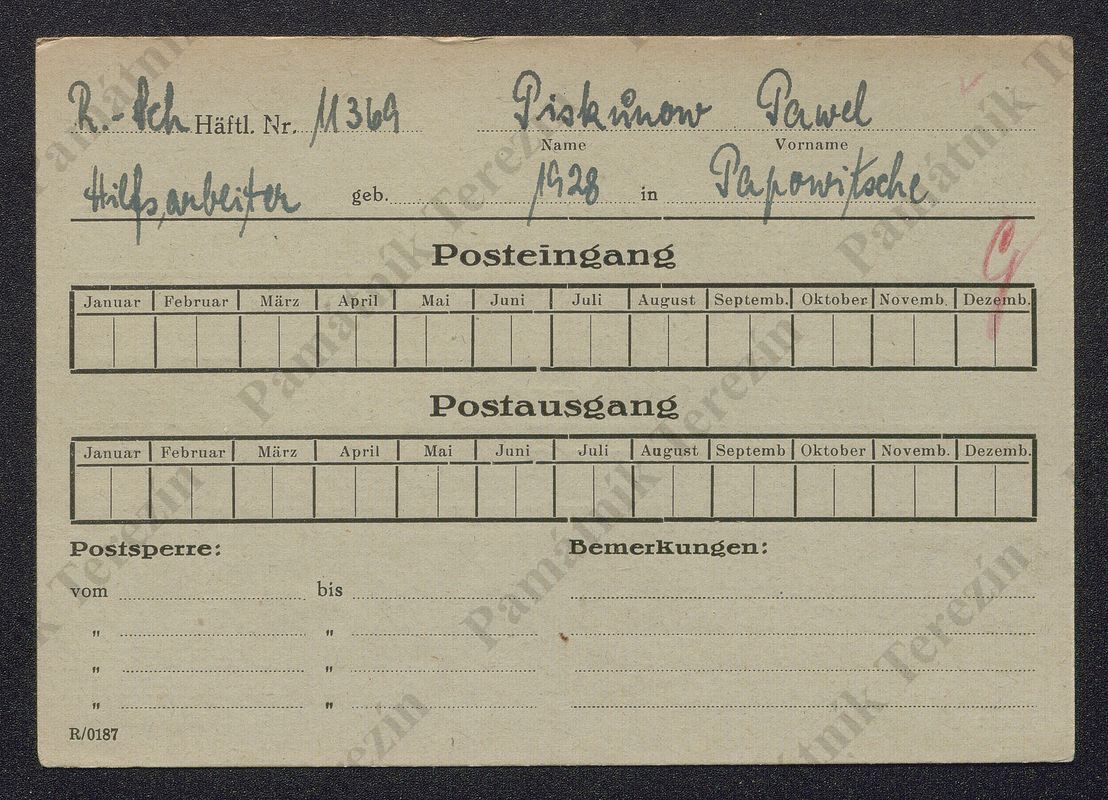 R.-Sch Häftl. Nr. 11369 Piskunow Pawel
Name Vorname
Hilfsarbeiter geb. 1928 in Papowitsche
Posteingang
Januar Februar März April Mai Juni Juli August Septemb. Oktober Novemb. Dezemb.
Postausgang
Januar Februar März April Mai Juni Juli August Septemb Oktober Novemb. Dezemb.
Postsperre: Bemerkungen:
vom bis
" "
" "
" "
R/0187
Památník Terezín